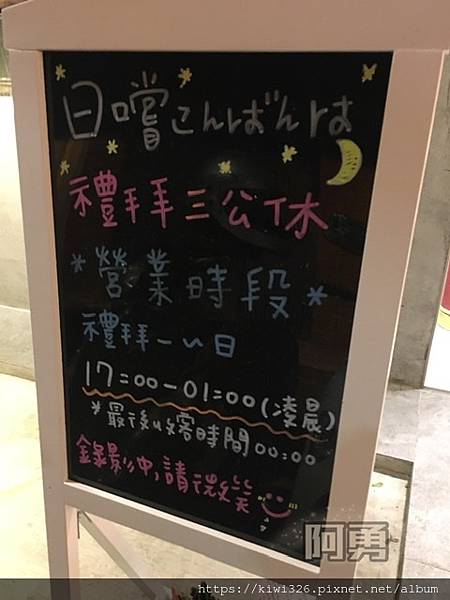 日嚐こんばんは
禮拜三公休
*營業時段*
禮拜一~日
17:00-01:00(凌晨)
*最後收客時間00:00
錄影中,請微笑
阿勇
https://kiwi326.pixnet.net/album